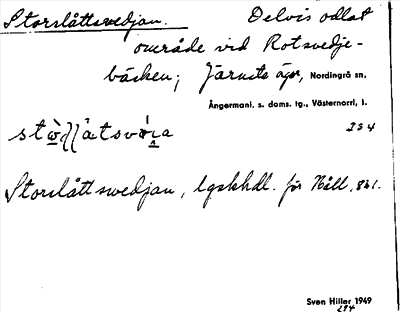 Storslåttsvedjan. Delvis odlat
område vid Rotsvedje-
bäcken; Järnsta ägor, Nordingrå sn,
Ångermanl. s. doms. tg., Västernorrl. l.
254
Storslåttswedjan, lgskhdl. för Häll, 821.
Sven Hiller 1949